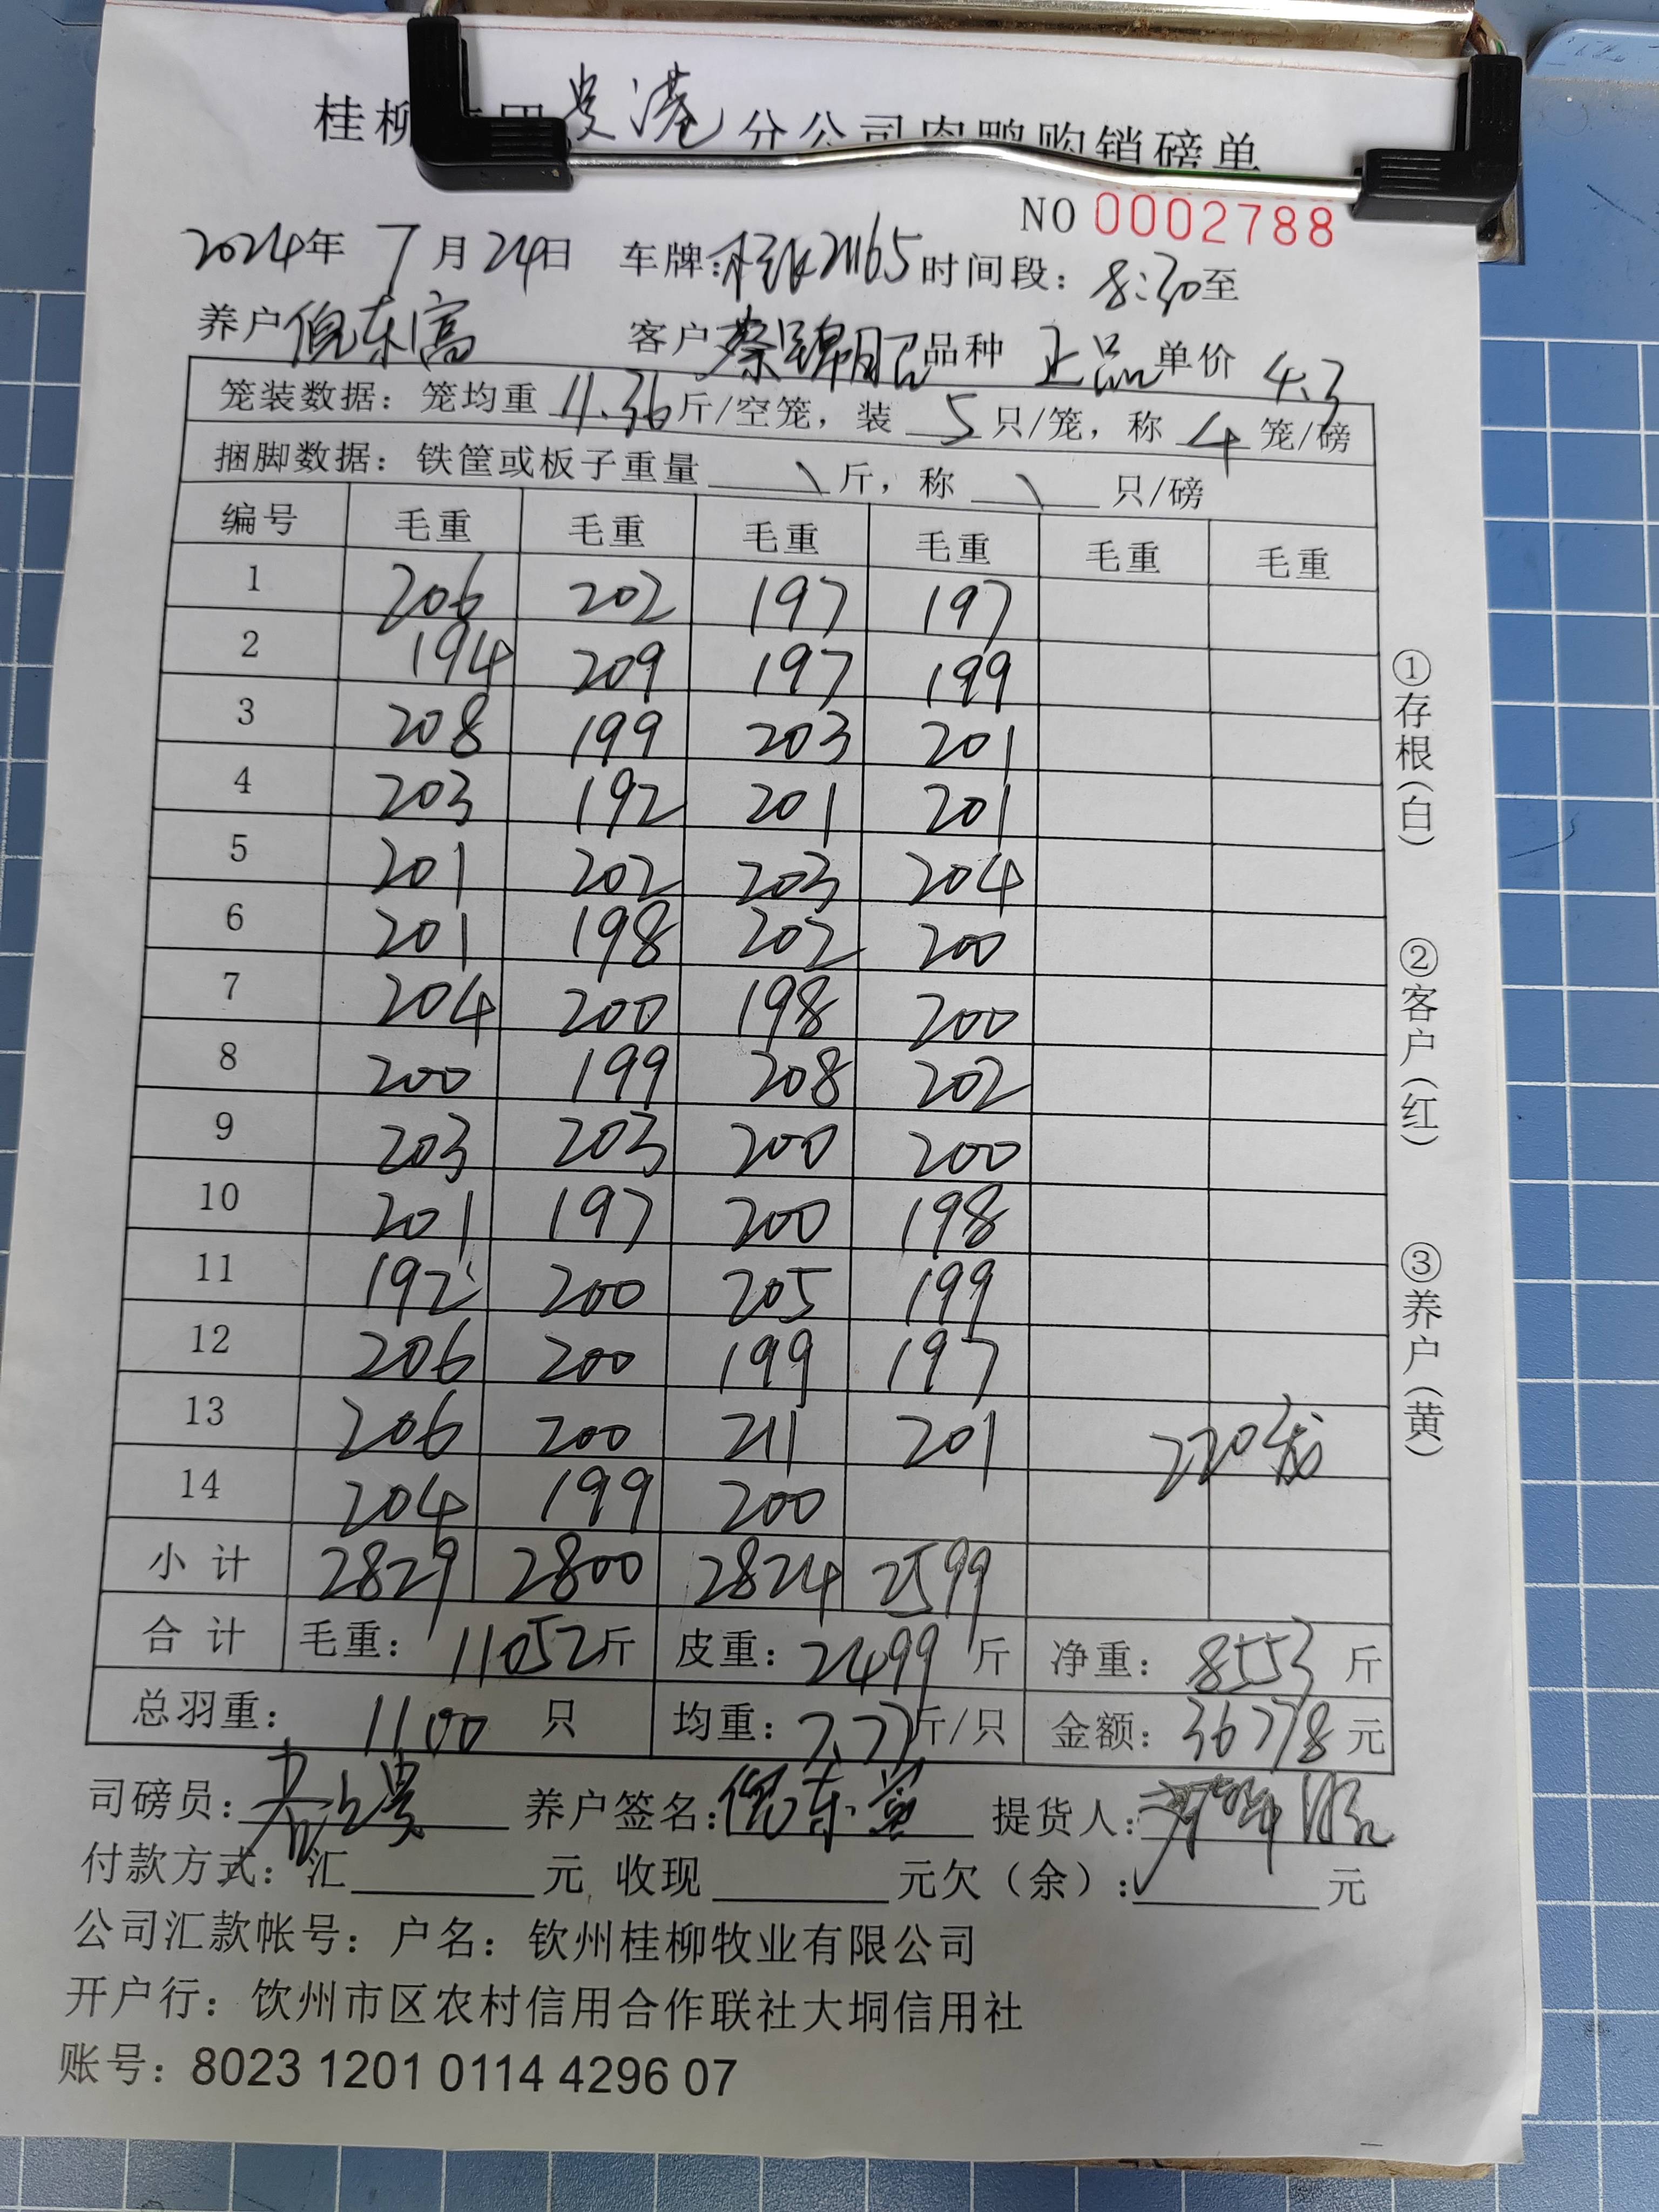 桂柳集团 分公司肉鸭购销磅单
NO 0002788
2024年 7月24日 车牌: 2165 时间段: 8:30至
养户 倪东高 客户 蔡锦昭 品种 正品 单价 4.3
笼装数据: 笼均重 11.36 斤/空笼, 装 5 只/笼, 称 4 笼/磅
捆脚数据: 铁筐或板子重量 \ 斤, 称 \ 只/磅
编号 毛重 毛重 毛重 毛重 毛重 毛重
1 206 202 197 197
2 194 209 197 199
3 208 199 203 201
4 203 192 201 201
5 201 202 203 204
6 201 198 202 200
7 204 200 198 200
8 200 199 208 202
9 203 203 200 200
10 201 197 200 198
11 192 200 205 199
12 206 200 199 197
13 206 200 211 201 220
14 204 199 200
小计 2829 2800 2824 2599
合计 毛重: 11052斤 皮重: 2499 斤 净重: 8553 斤
总羽重: 1100 只 均重: 7.77斤/只 金额: 36778 元
司磅员: 养户签名: 倪东 提货人:
付款方式: 汇 元, 收现 元欠(余): 元
公司汇款帐号: 户名: 钦州桂柳牧业有限公司
开户行: 钦州市区农村信用合作联社大垌信用社
账号: 8023 1201 0114 4296 07
①存根(白)
②客户(红)
③养户(黄)